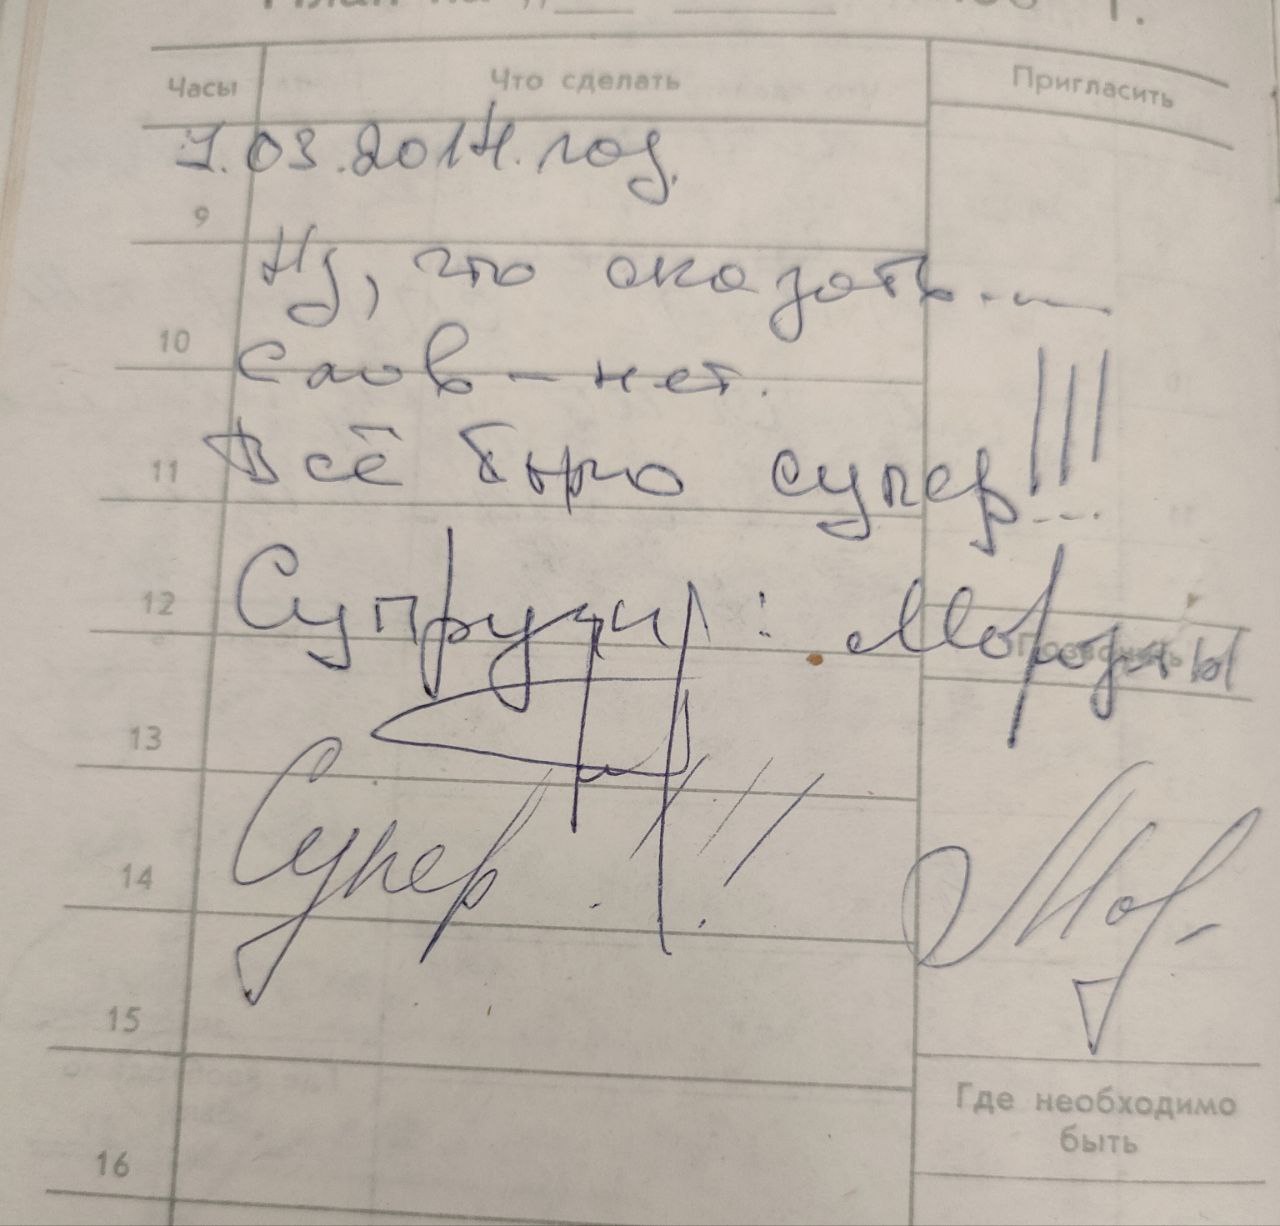 План на "
Часы Что сделать Пригласить
7.03.2014. год.
9
Ну, что сказать...
10
Слов – нет.
11
Всё было супер!!!
12
Супруги: Морозы
13
Супер!!!
14
15
Где необходимо
быть
16